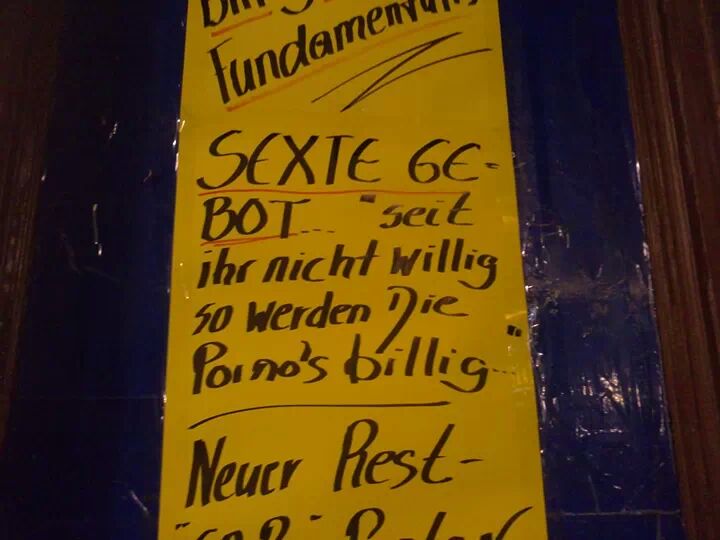 Fundamental
SEXTE GE-
BOT... "seit
ihr nicht willig
so werden Die
Porno's billig..."
Neuer Rest-